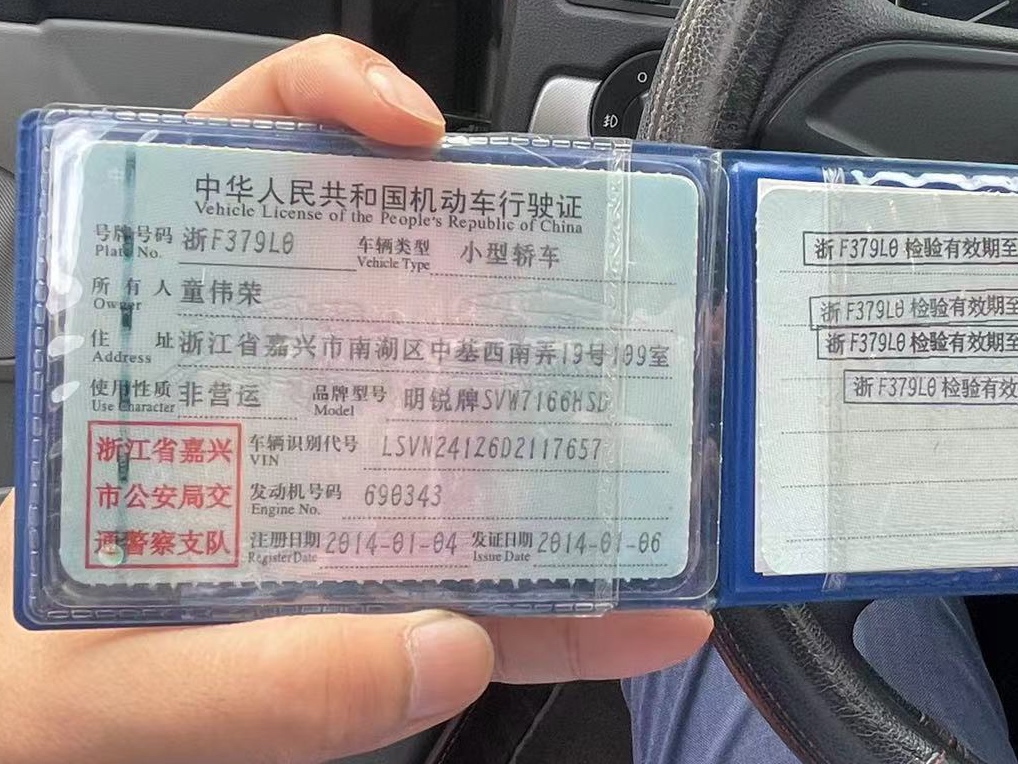 中华人民共和国机动车行驶证
Vehicle License of the People's Republic of China
号牌号码 浙F379L0 车辆类型 小型轿车
Plate No. Vehicle Type
所有人 童伟荣
Owner
住址 浙江省嘉兴市南湖区中基西南弄19号109室
Address
使用性质 非营运 品牌型号 明锐牌SVW7166HSD
Use Character Model
浙江省嘉兴市公安局交通警察支队
车辆识别代号 LSVN24126D2117657
VIN
发动机号码 690343
Engine No.
注册日期 2014-01-04 发证日期 2014-01-06
Register Date Issue Date
浙F379L0检验有效期至
浙F379L0检验有效期至
浙F379L0检验有效期至
浙F379L0检验有效期至